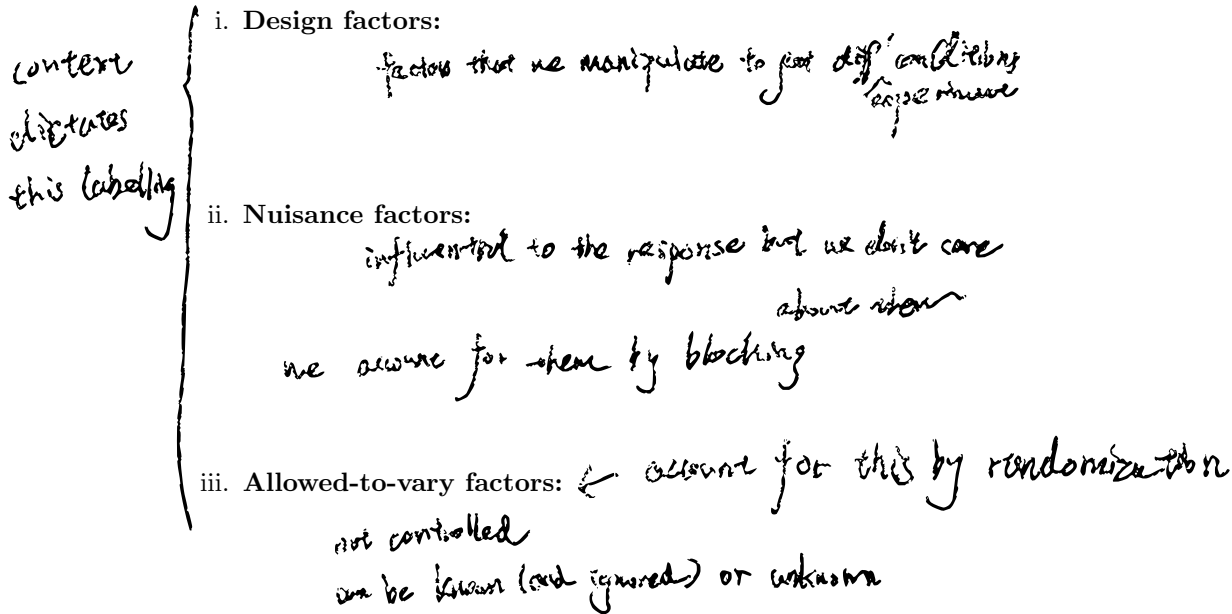 context
dictates
this labelling
i. Design factors:
factors that we manipulate to get diff conditions
experiment
ii. Nuisance factors:
influential to the response but we don't care
about them
we account for them by blocking
iii. Allowed-to-vary factors: ← account for this by randomization
not controlled
can be known (and ignored) or unknown